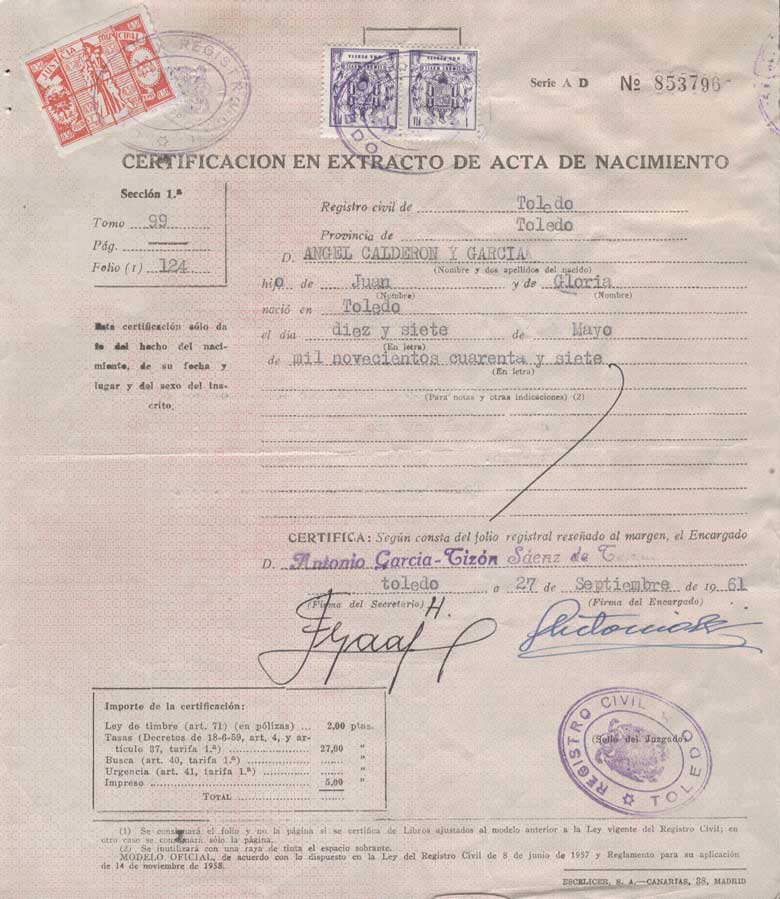 JUSTICIA MUNICIPAL
REGISTRO CIVIL
Serie A D Nº 853796
CERTIFICACION EN EXTRACTO DE ACTA DE NACIMIENTO
Sección 1.ª
Tomo 99
Pág.
Folio (1) 124
Esta certificación sólo da
fe del hecho del naci-
miento, de su fecha y
lugar y del sexo del ins-
crito.
Registro civil de Toledo
Provincia de Toledo
D. ANGEL CALDERON Y GARCIA
(Nombre y dos apellidos del nacido)
hijo de Juan y de Gloria
(Nombre) (Nombre)
nació en Toledo
el día diez y siete de Mayo
(En letra)
de mil novecientos cuarenta y siete
(En letra)
(Para notas y otras indicaciones) (2)
CERTIFICA: Según consta del folio registral reseñado al margen, el Encargado
D. Antonio Garcia-Tizón Sáenz de
toledo a 27 de Septiembre de 1961
(Firma del Secretario) H. (Firma del Encargado)
Importe de la certificación:
Ley de timbre (art. 71) (en pólizas) ... 2,00 ptas.
Tasas (Decretos de 18-6-59, art. 4, y ar-
tículo 37, tarifa 1.ª) 27,00 "
Busca (art. 40, tarifa 1.ª) "
Urgencia (art. 41, tarifa 1.ª) "
Impreso 5,00 "
TOTAL
REGISTRO CIVIL
(Sello del Juzgado)
TOLEDO
(1) Se consignará el folio y no la página si se certifica de Libros ajustados al modelo anterior a la Ley vigente del Registro Civil; en
otro caso se consignará sólo la página.
(2) Se inutilizará con una raya de tinta el espacio sobrante.
MODELO OFICIAL, de acuerdo con lo dispuesto en la Ley del Registro Civil de 8 de junio de 1957 y Reglamento para su aplicación
de 14 de noviembre de 1958.
ESCELICER, S. A.—CANARIAS, 38, MADRID